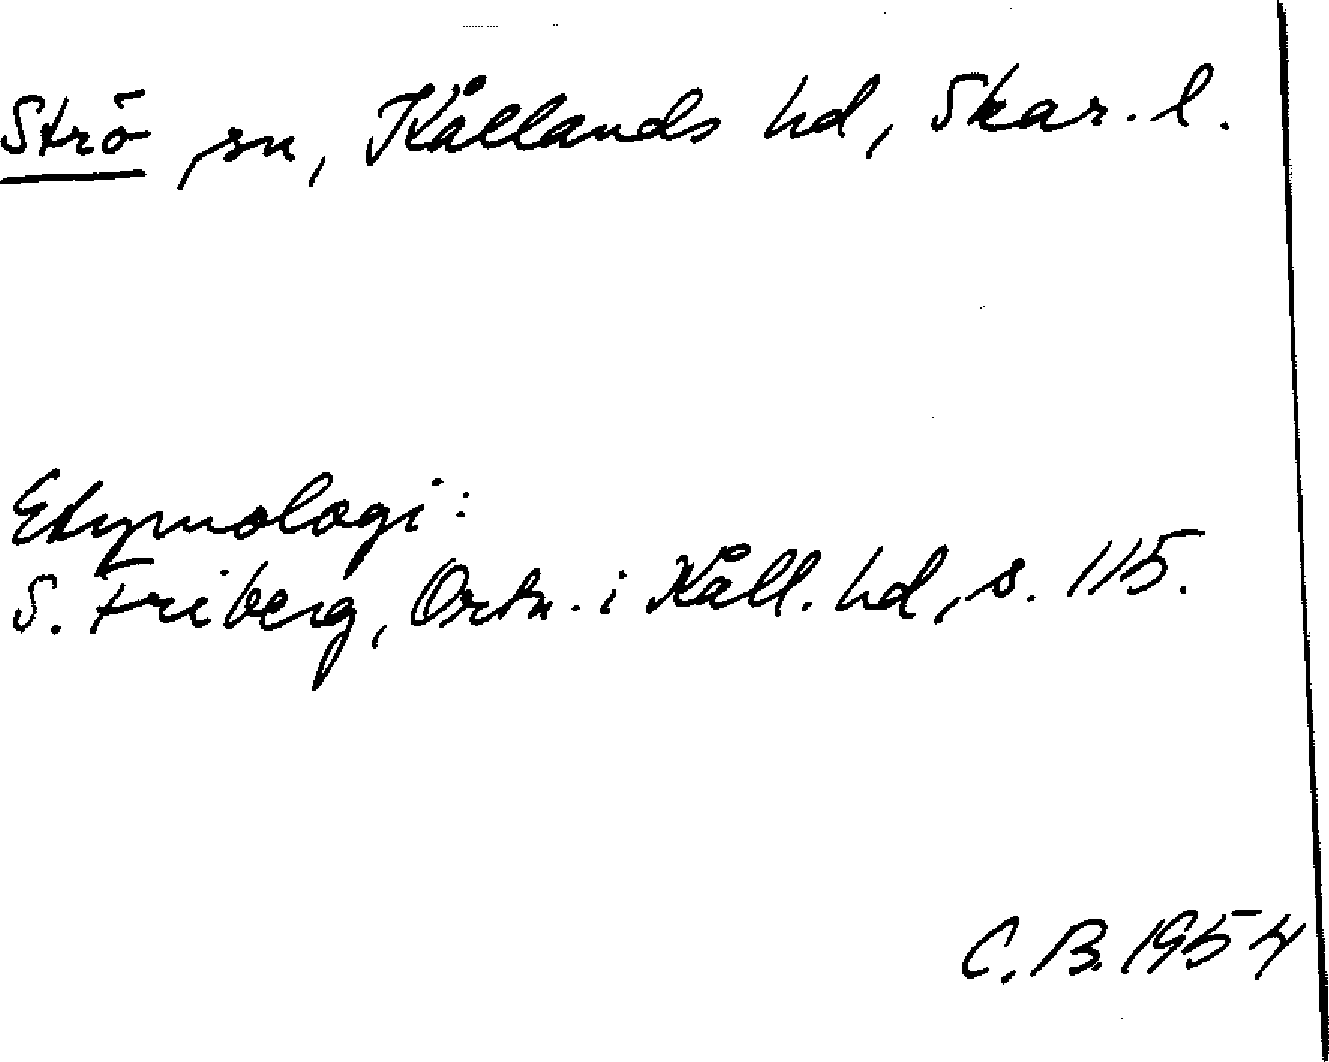 Strö, sn, Kållands hd, Skar. l.
Etymologi:
S. Friberg, Ortn. i Kåll. hd, s. 115.
C. B. 1954